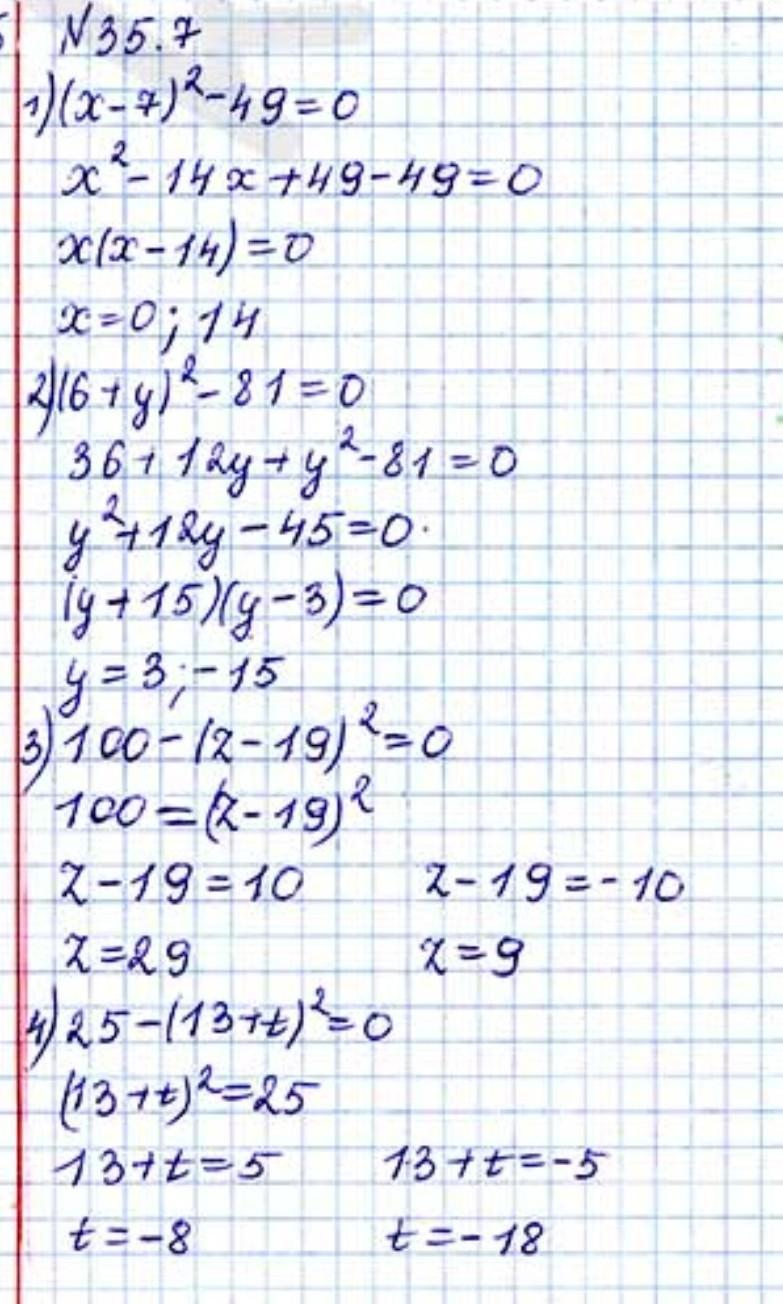 N35.7
1)(x-7)²-49=0
x²-14x+49-49=0
x(x-14)=0
x=0; 14
2)(6+y)²-81=0
36+12y+y²-81=0
y²+12y-45=0.
(y+15)(y-3)=0
y=3;-15
3)100-(z-19)²=0
100=(z-19)²
z-19=10 z-19=-10
z=29 z=9
4)25-(13+t)²=0
(13+t)²=25
13+t=5 13+t=-5
t=-8 t=-18